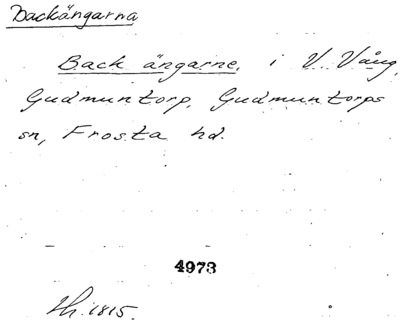 Backängarna
Back ängarne, i V. Vång,
Gudmuntorp, Gudmuntorps
sn, Frosta hd.
4973
1815.